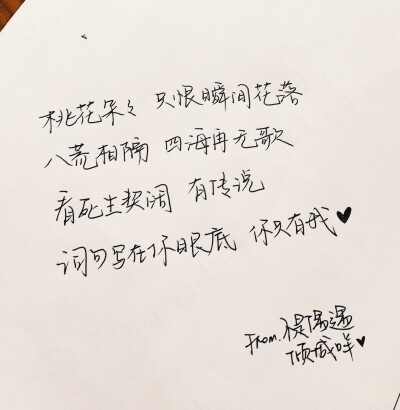 桃花朵々 只恨瞬间花落
八荒相隔 四海再无歌
看死生契阔 有传说
词句写在你眼底 你只有我♥
From.
倾城咩♥